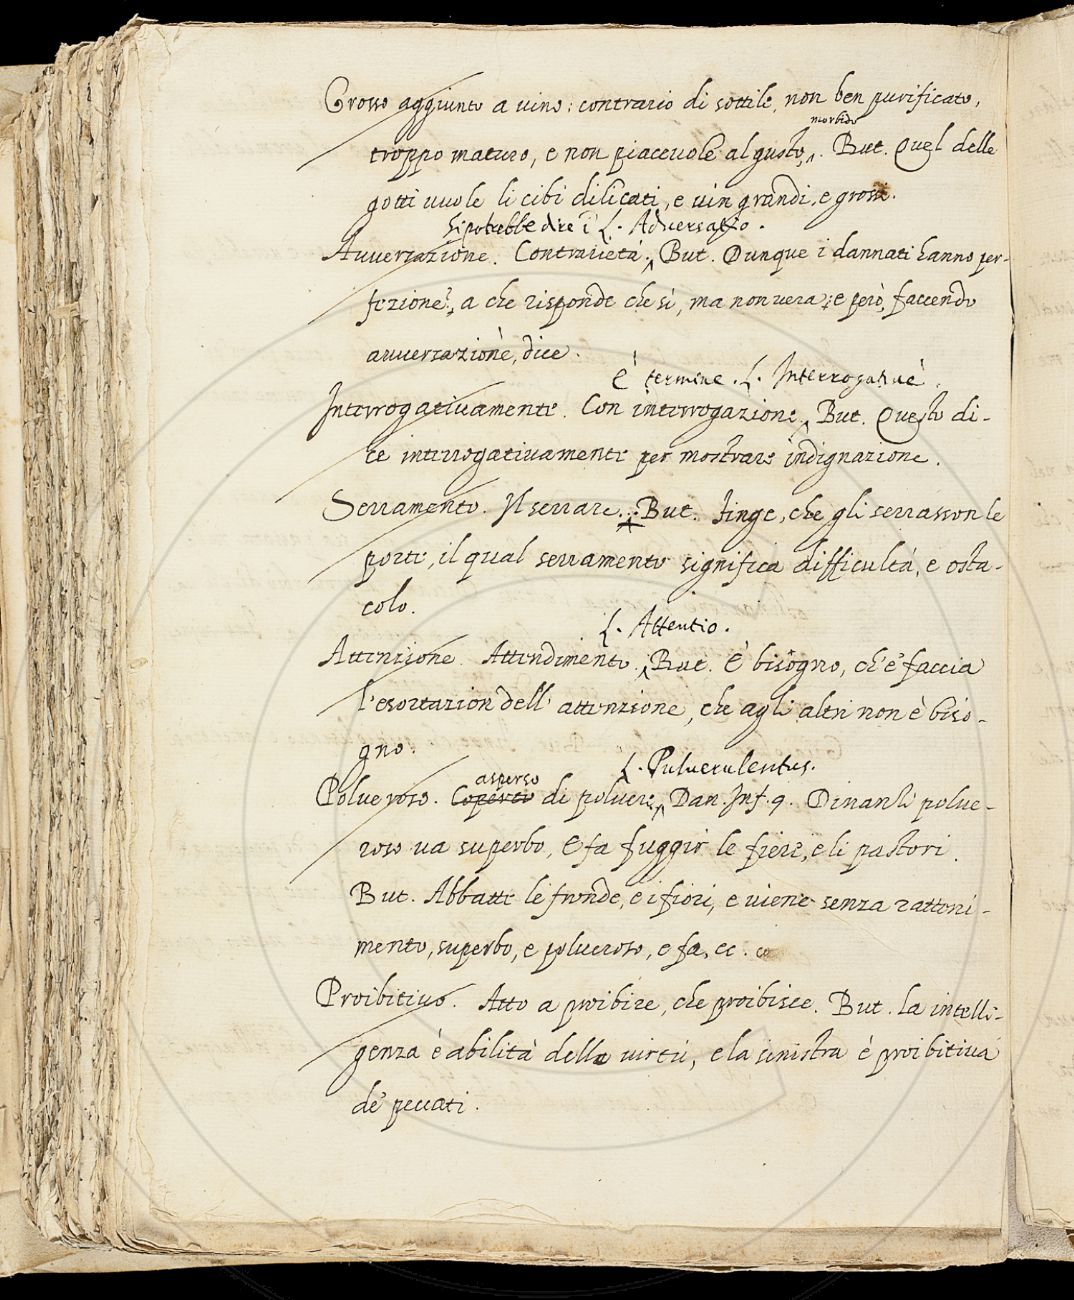 Grosso aggiunto a vino: contrario di sottile, non ben purificato,
morbido
troppo maturo, e non piaceuole al gusto,. But. Quel delle
gotti vuole li cibi dilicati, e vin grandi, e grossi.
Si potrebbe dire L. Adversatio.
Avversazione. Contrarietà. But. Dunque i dannati hanno per-
fezione?, a che risponde che sì, ma non vera; e però, faccendo
avversazione, dice.
È termine. L. Interrogativè.
Interrogativamente. Con interrogazione. But. Questo di-
ce interrogativamente per mostrare indignazione.
Serramento. Il serrare. But. finge, che gli serrasson le
porte, il qual serramento significa difficultà, e osta-
colo.
L. Attentio.
Attenzione. Attendimento. But. È bisogno, ch'e' faccia
l'esortazion dell' attenzione, che agli altri non è biso-
gno.
asperso L. Pulverulentus.
Polveroso. Coperto di polvere. Dan. Inf. 9. Dinanzi polve-
roso va superbo, E fa fuggir le fiere, e li pastori.
But. Abbatte le fronde, e i fiori, e viene senza ratteni-
mento, superbo, e polveroso, e fa, ec.
Proibitivo. Atto a proibire, che proibisce. But. la intelli-
genza è abilità della virtù, e la sinistra è proibitiva
de' peccati.